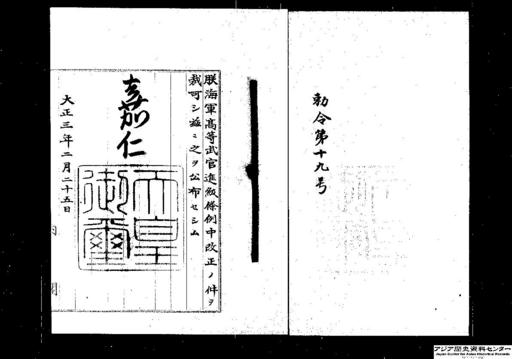 勅令第十九号
朕海軍高等武官進級條例中改正ノ件ヲ
裁可シ茲ニ之ヲ公布セシム
嘉仁
天皇
御璽
大正三年二月二十五日
アジア歴史資料センター
Japan Center for Asian Historical Records